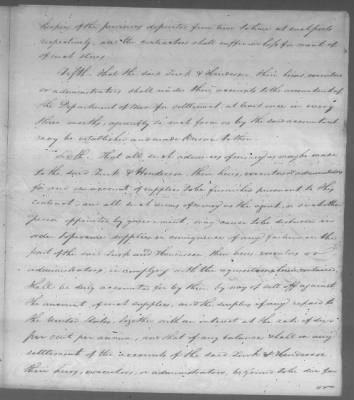 keeper of the provisions deposited from time to time at such posts
respectively, as the contractors shall suffer no loss for want of
of such stores.
Fifth. That the said Turk & Henderson their heirs, executors
or administrators shall render their accounts to the accountant of
the Department of War for settlement at least once in every
three months, agreeably to such form as by the said accountant
may be established and made known to them.
Sixth. That all such advances of money as may be made
to the said Turk & Henderson their heirs, executors or administrators
for and on account of supplies to be furnished pursuant to this
contract, and all such sums of money as the agent, or such other
person appointed by government, may cause to be disbursed in
order to procure supplies in consequence of any failure on the
part of the said Turk and Henderson their heirs executors or
administrators, in complying with the requisitions herein contained,
shall be duly accounted for by them by way of set off against
the amount of such supplies, and the surplus if any repaid to
the United States, together with an interest at the rate of six
per cent per annum, and that if any balance shall on any
settlement of the accounts of the said Turk & Henderson
their heirs, executors, or administrators, be found to be due for
or